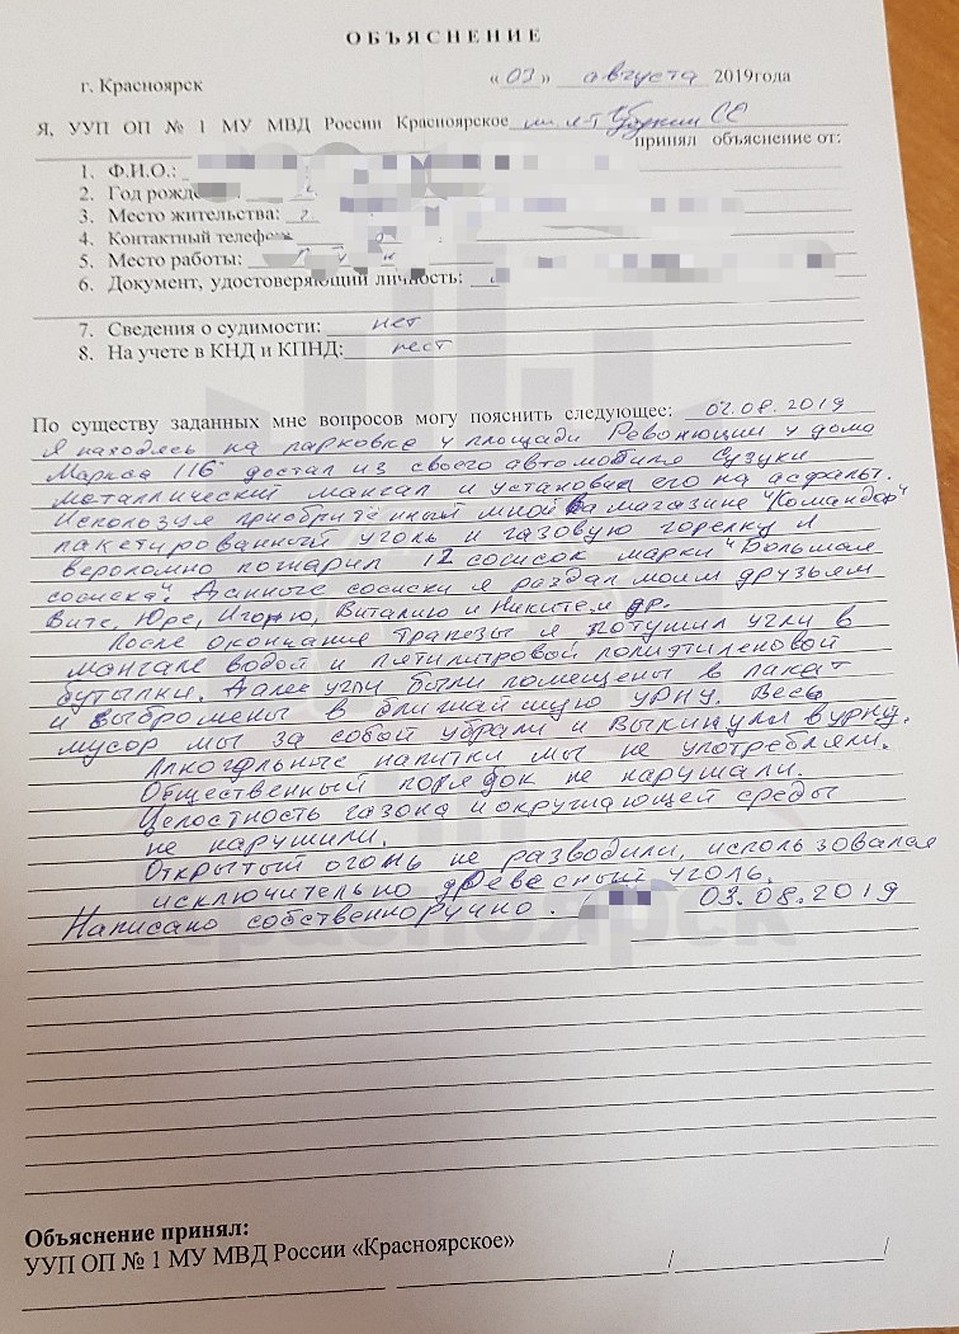 ОБЪЯСНЕНИЕ
г. Красноярск «03» августа 2019года
Я, УУП ОП № 1 МУ МВД России Красноярское
принял объяснение от:
1. Ф.И.О.:
2. Год рожде
3. Место жительства: г.
4. Контактный телефон
5. Место работы:
6. Документ, удостоверяющий личность:
7. Сведения о судимости: нет
8. На учете в КНД и КПНД:
По существу заданных мне вопросов могу пояснить следующее: 02.08.2019
Я находясь на парковке у площади Революции у дома
Маркса 116 достал из своего автомобиля Сузуки
металлический мангал и установил его на асфальт.
Используя приобритённый мной в магазине "Командор"
пакетированный уголь и газовую горелку я
вероломно пожарил 12 сосисок марки "Большая
сосиска". Данные сосиски я раздал моим друзьям
Вите, Юре, Игорю, Виталию и Никите и др.
После окончания трапезы я потушил угли в
мангале водой и пятилитровой полиэтиленовой
бутылки. Далее угли были помещены в пакет
и выброшены в ближайшую урну. Весь
мусор мы за собой убрали и выкинули в урну.
Алкогольные напитки мы не употребляли.
Общественный порядок не нарушали.
Целостность газона и окружающей среды
не нарушили.
Открытый огонь не разводили, использовался
исключительно древесный уголь.
Написано собственноручно. 03.08.2019
Красноярск
Объяснение принял:
УУП ОП № 1 МУ МВД России «Красноярское»
/ /